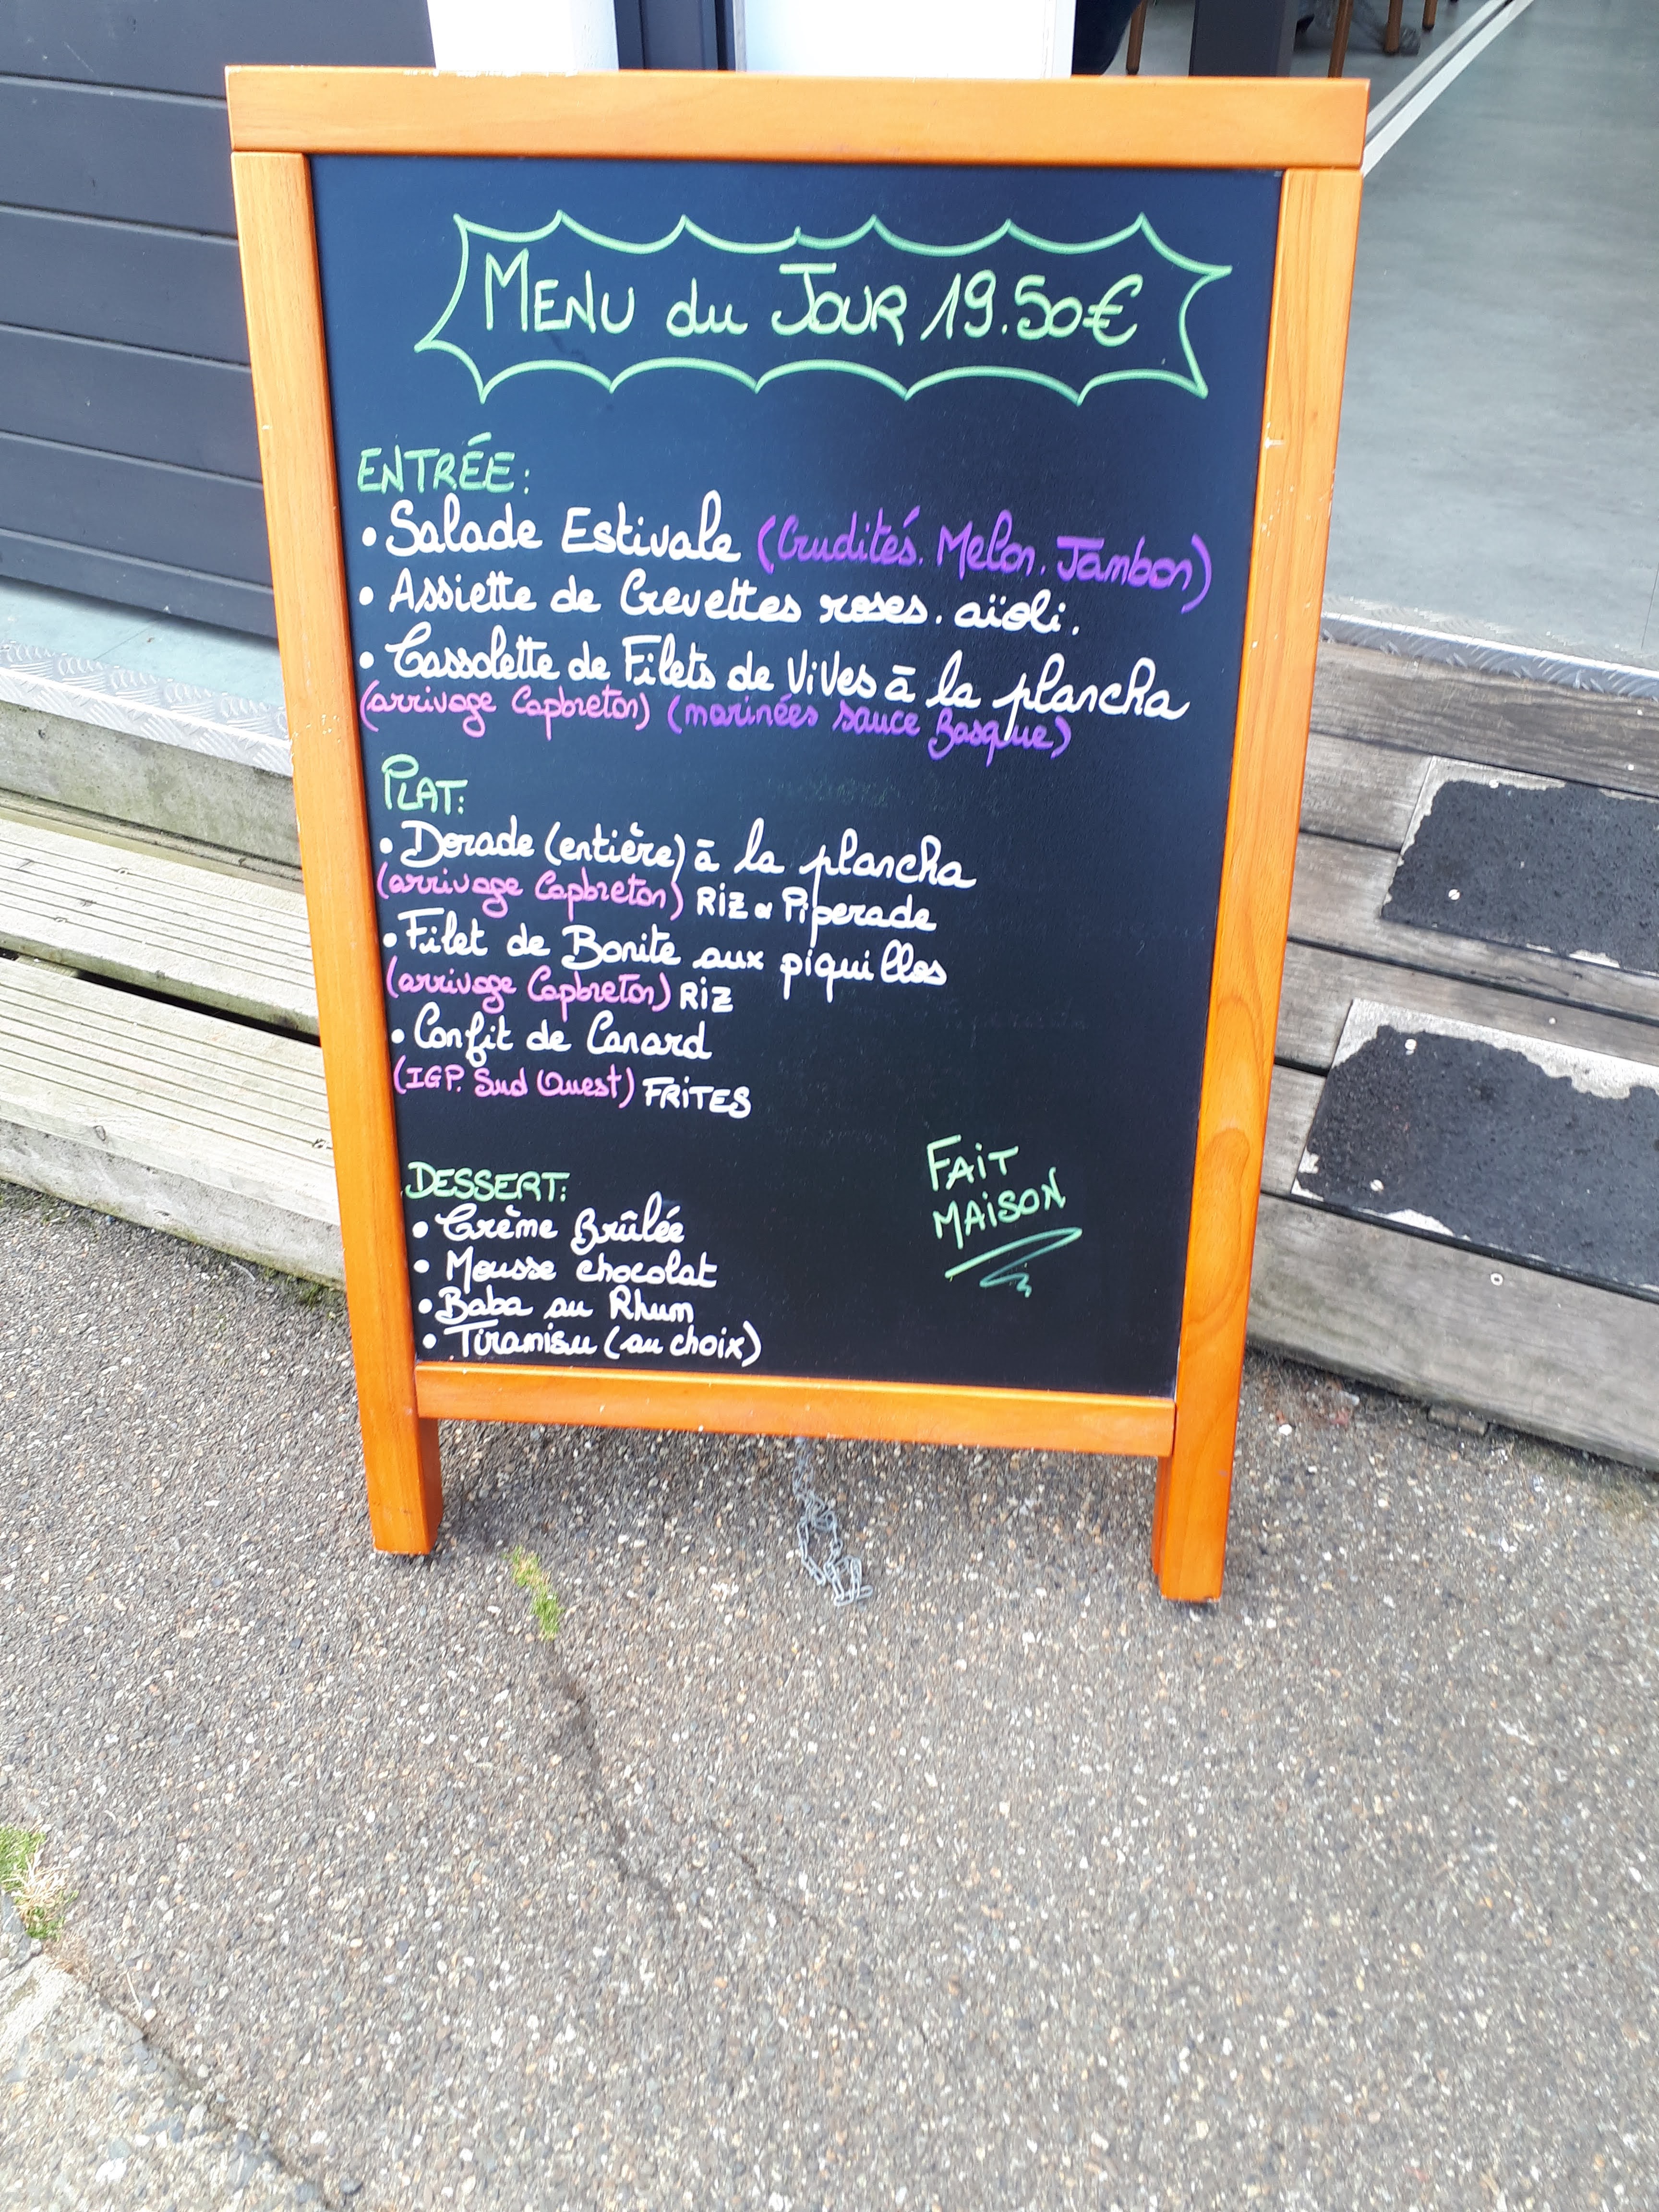 MENU du JOUR 19.50€
ENTRÉE:
• Salade Estivale (Crudités. Melon. Jambon)
• Assiette de Crevettes roses. aïoli.
• Cassolette de Filets de ViVes à la plancha
(arrivage Capbreton) (marinées sauce Basque)
PLAT:
• Dorade (entière) à la plancha
(arrivage Capbreton) RiZ & Piperade
• Filet de Bonite aux piquillos
(arrivage Capbreton) RiZ
• Confit de Canard
(IGP. Sud Ouest) FRiTES
DESSERT:
• Crème Brûlée
• Mousse chocolat
• Baba au Rhum
• Tiramisu (au choix)
FAiT
MAiSON